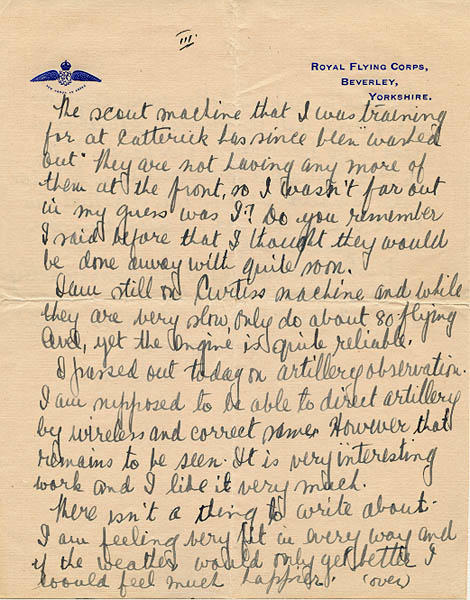 III.
ROYAL FLYING CORPS,
BEVERLEY,
YORKSHIRE.
The scout machine that I was training
for at Catterick has since been "washed
out" They are not having any more of
them at the front, so I wasn't far out
in my guess was I? Do you remember
I said before that I thought they would
be done away with quite soon.
I am still on Curtiss machine and while
they are very slow, only do about 80 flying
level, yet the engine is quite reliable.
I passed out today on artillery observation.
I am supposed to be able to direct artillery
by wireless and correct same. However that
remains to be seen. It is very interesting
work and I like it very much.
There isn't a thing to write about.
I am feeling very fit in every way and
if the weather would only get better I
would feel much happier. (over)